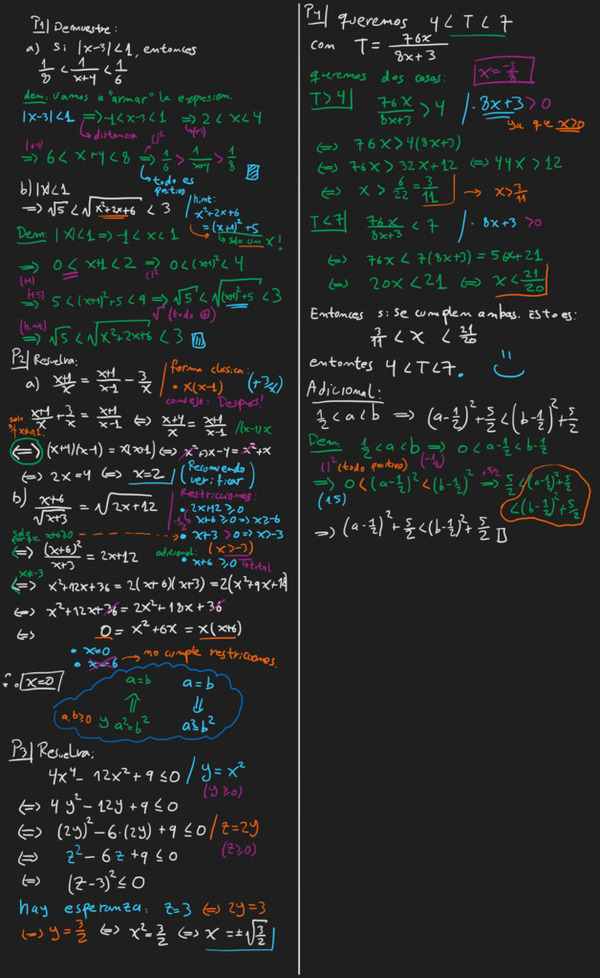 P1| Demuestre:
a) Si |x-3|<1, entonces
1/8 < 1/(x+4) < 1/6
dem: vamos a "armar" la expresión.
|x-3|<1 ⟹ -1<x-3<1 ⟹ 2<x<4
distancia
(+4)
⟹ 6 < x+4 < 8 ⟹ 1/6 > 1/(x+4) > 1/8
todo es positivo
b) |x|<1
⟹ √5 < √(x²+2x+6) < 3
/hint:
x²+2x+6
=(x+1)²+5
solo un x!
Dem: |x|<1 ⟹ -1<x<1
⟹ 0 ≤ x+1 < 2 ⟹ 0<(x+1)²<4
(+1)
(+5)
⟹ 5<(x+1)²+5<9 ⟹ √5 < √((x+1)²+5) < 3
√ (todo ⊕)
(hint)
⟹ √5 < √(x²+2x+6) < 3
P2| Resuelva:
a) (x+1)/x = (x+1)/(x-1) - 3/x
forma clasica:
• x(x-1)
(+3/x)
consejo: Despejs!
solo si x≠0,1
(x+1)/x + 3/x = (x+1)/(x-1) ⟺ (x+4)/x = (x+1)/(x-1) /·(x-1)x
⟺ (x+4)(x-1) = x(x+1) ⟺ x²+3x-4 = x²+x
⟺ 2x=4 ⟺ x=2 (Recomiendo verificar)
b) (x+6)/√(x+3) = √(2x+12)
Restricciones:
• 2x+12≥0
x+6≥0 ⟹ x≥-6
• x+3>0 ⟹ x>-3
(x>-3)
total
adicional:
• x+6≥0
solo porque x+6≥0
⟺ (x+6)²/(x+3) = 2x+12
x≠-3
⟺ x²+12x+36 = 2(x+6)(x+3) = 2(x²+9x+18)
⟺ x²+12x+36 = 2x²+18x+36
⟺ 0 = x²+6x = x(x+6)
• x=0
• x=-6 → no cumple restricciones.
∴ x=0
a=b a=b
⇑ ⇓
a,b≥0 y a²=b² a²=b²
P3| Resuelva:
4x⁴ - 12x² + 9 ≤ 0 / y = x²
(y≥0)
⟺ 4y² - 12y + 9 ≤ 0
⟺ (2y)² - 6·(2y) + 9 ≤ 0 / z=2y
(z≥0)
⟺ z² - 6z + 9 ≤ 0
⟺ (z-3)² ≤ 0
hay esperanza: z=3 ⟺ 2y=3
⟺ y=3/2 ⟺ x²=3/2 ⟺ x = ±√(3/2)
P4| queremos 4 < T < 7
con T = 76x/(8x+3)
queremos dos cosas:
x = -3/8
T>4| 76x/(8x+3) > 4 /·8x+3>0
ya que x>0
⟺ 76x > 4(8x+3)
⟺ 76x > 32x+12 ⟺ 44x>12
⟺ x > 6/22 = 3/11 → x>3/11
T<7| 76x/(8x+3) < 7 /·8x+3 >0
⟺ 76x < 7(8x+3) = 56x+21
⟺ 20x<21 ⟺ x<21/20
Entonces si se cumplem ambas. Esto es:
3/11 < x < 21/20
entontes 4<T<7.
Adicional:
1/2 < a < b ⟹ (a-1/2)²+5/2 < (b-1/2)²+5/2
Dem: 1/2<a<b ⟹ 0<a-1/2<b-1/2
()² (todo positivo) (-1/2)
⟹ 0<(a-1/2)²<(b-1/2)² ⟹ 5/2<(a-1/2)²+5/2
+5/2
<(b-1/2)²+5/2
(15)
⟹ (a-1/2)²+5/2<(b-1/2)²+5/2